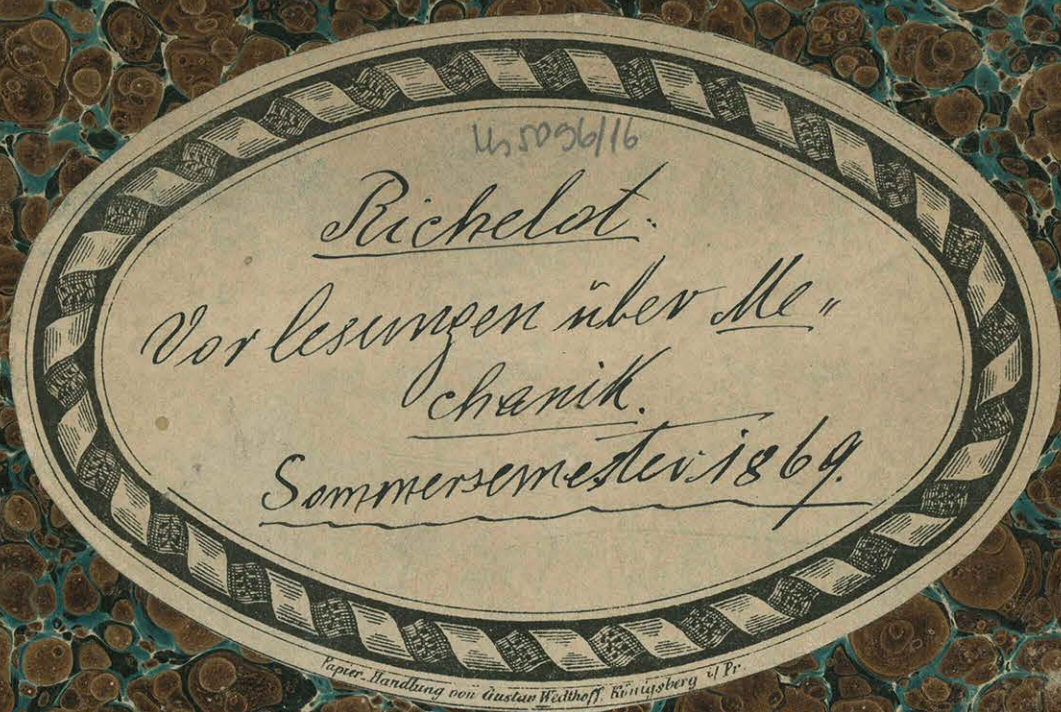 Hs 5096/16
Richelot:
Vorlesungen über Me„
chanik.
Sommersemester 1869.
Papier-Handlung von Gustav Wedthoff, Königsberg i/ Pr.